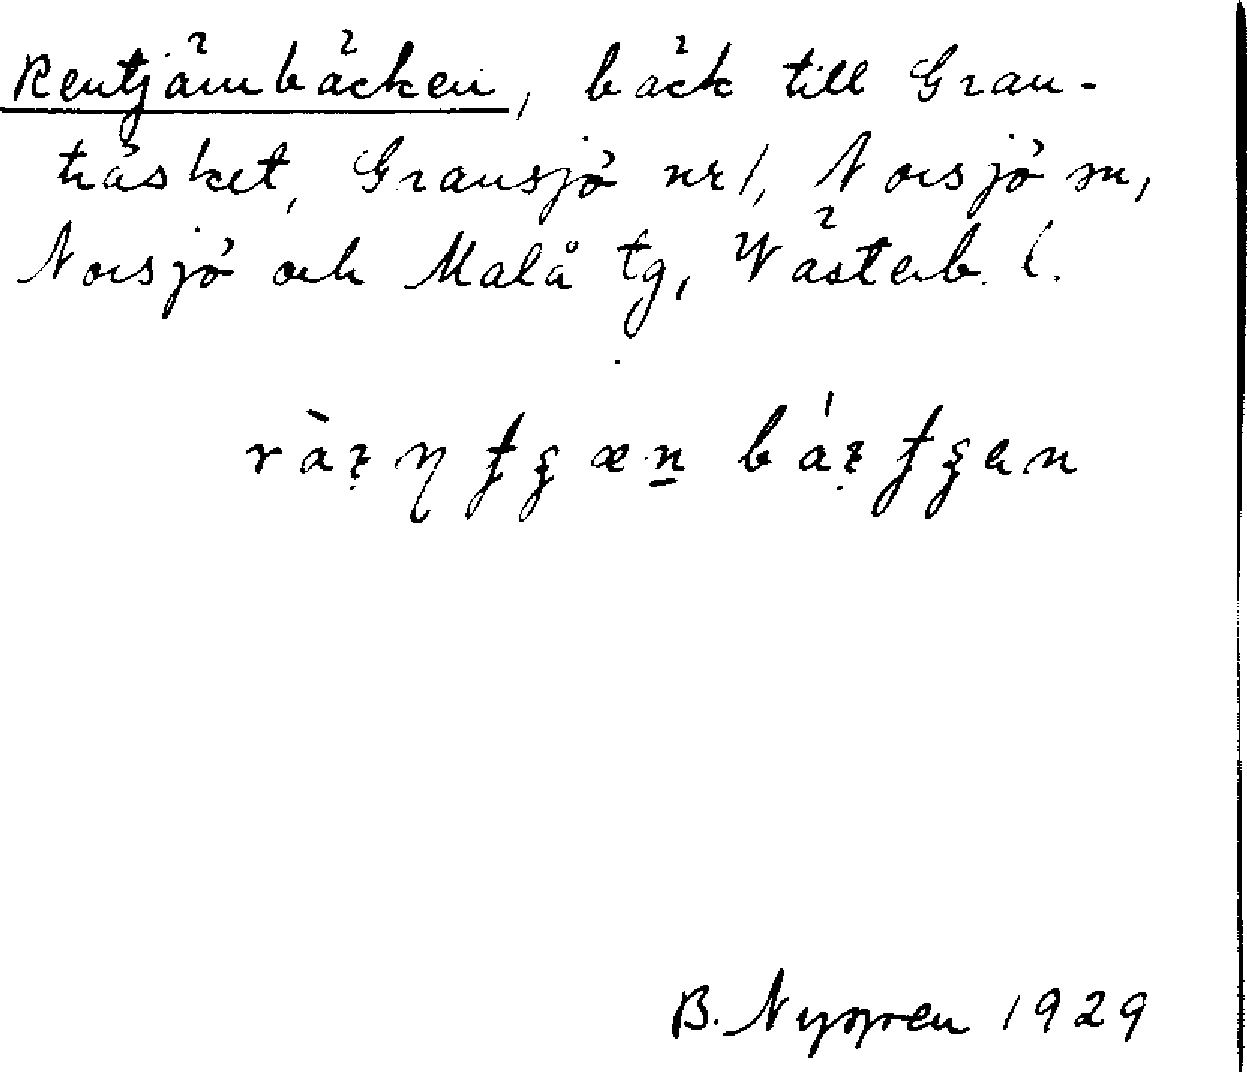 Rentjärnbäcken, bäck till Gran-
träsket, Gransjö nr 1, Norsjö sn,
Norsjö och Malå tg, Västerb. l.
B. Nygren 1929